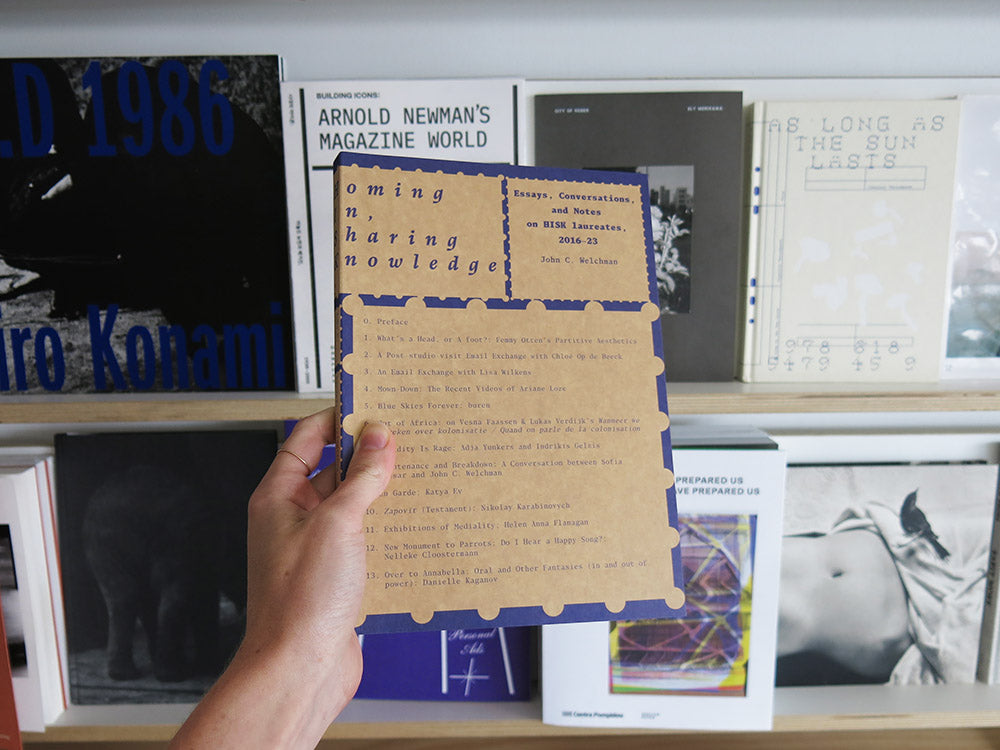 .D 1986
iro Konami
BUILDING ICONS:
ARNOLD NEWMAN'S
MAGAZINE WORLD
AS LONG AS
THE SUN
LASTS
oming
n,
haring
nowledge
Essays, Conversations,
and Notes
on HISK laureates,
2016–23
John C. Welchman
0. Preface
1. What's a Head, or A foot?: Femmy Otten's Partitive Aesthetics
2. A Post-studio visit Email Exchange with Chloé Op de Beeck
3. An Email Exchange with Lisa Wilkens
4. Mown-Down: The Recent Videos of Ariane Loze
5. Blue Skies Forever: buren
Out of Africa: on Vesna Faassen & Lukas Verdijk's Wanneer we
eken over kolonisatie / Quand on parle de la colonisation
dity Is Rage: Adja Yunkers and Indrikis Gelzis
ntenance and Breakdown: A Conversation between Sofia
sar and John C. Welchman
n Garde: Katya Ev
10. Zapovit (Testament): Nikolay Karabinovych
11. Exhibitions of Mediality: Helen Anna Flanagan
12. New Monument to Parrots: Do I Hear a Happy Song?:
Nelleke Cloosterman
13. Over to Annabella: Oral and Other Fantasies (in and out of
power): Danielle Kaganov
PREPARED US
AVE PREPARED US
Personal
Ads
Centre Pompidou